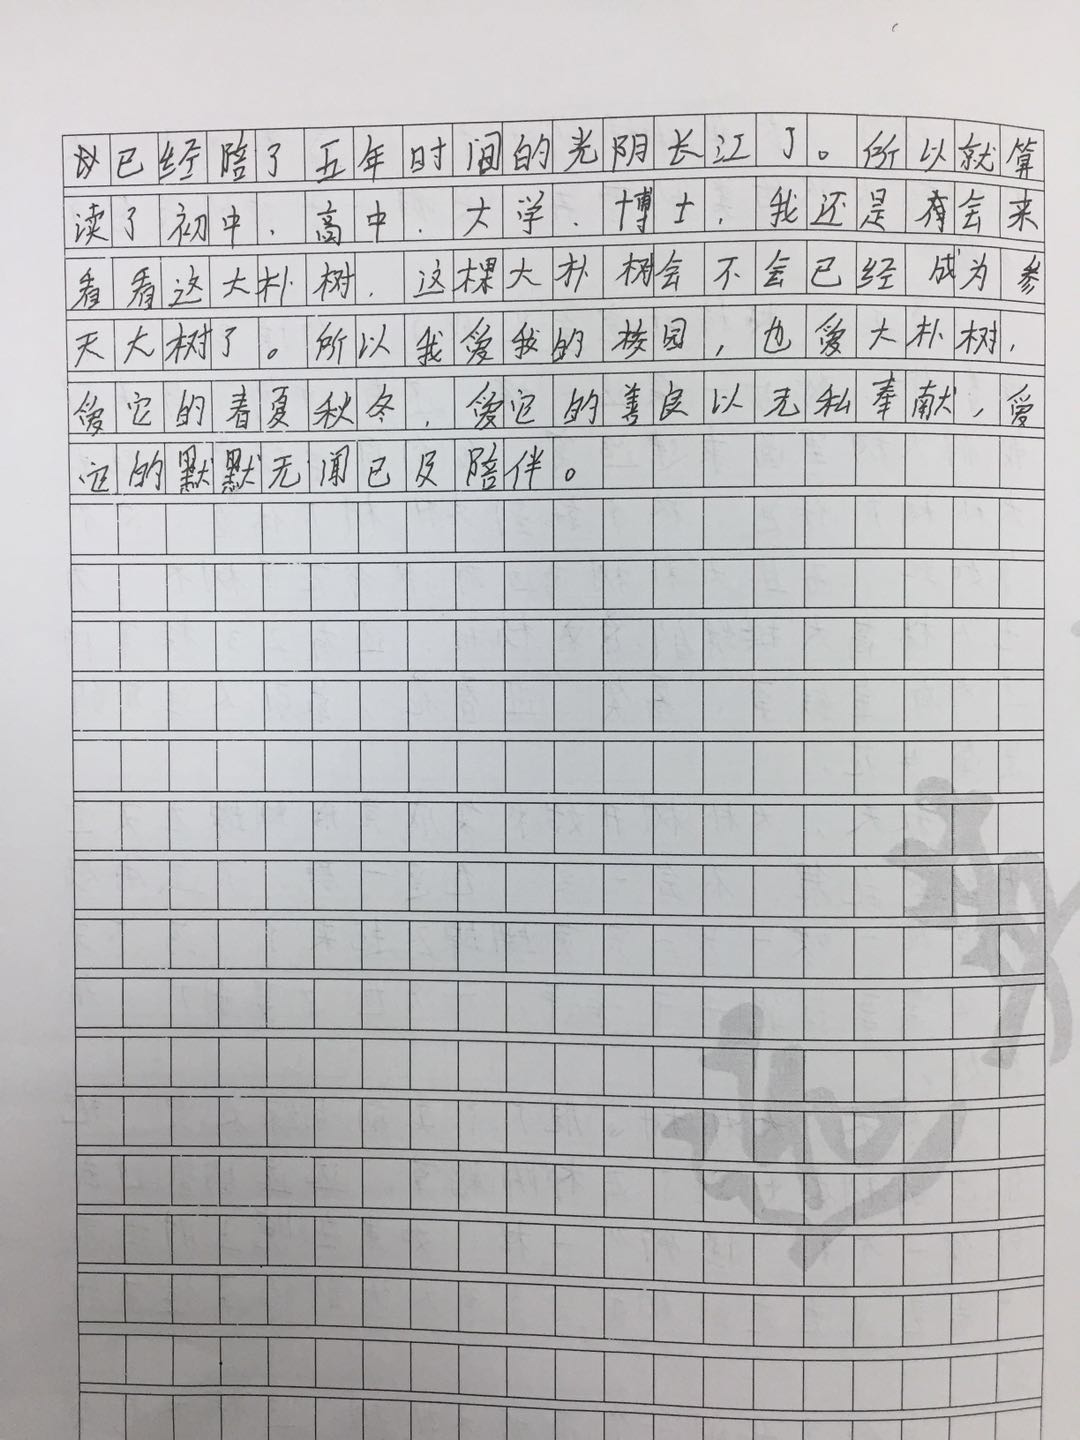 以已经陪了五年时间的光阴长江了。所以就算
读了初中、高中、大学、博士，我还是有会来
看看这大朴树，这棵大朴树会不会已经成为参
天大树了。所以我爱我的校园，也爱大朴树，
爱它的春夏秋冬，爱它的善良以无私奉献，爱
它的默默无闻已及陪伴。